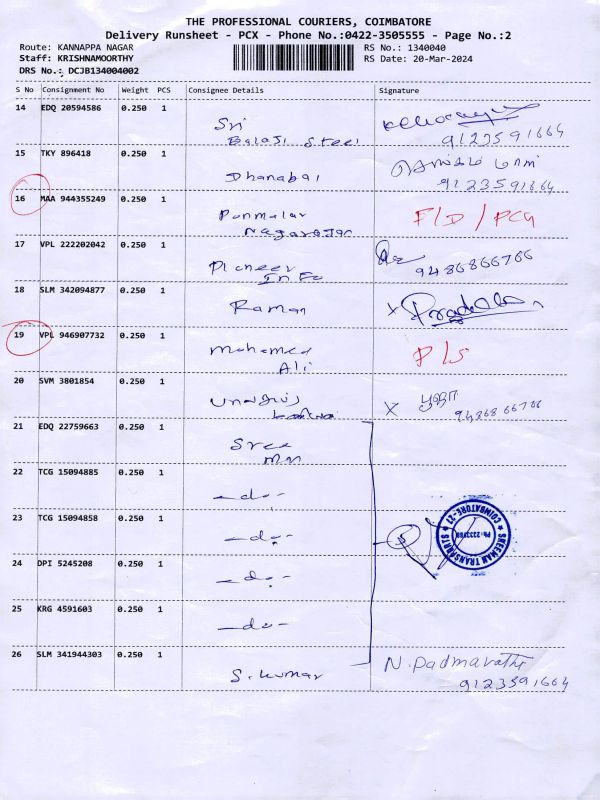 THE PROFESSIONAL COURIERS, COIMBATORE
Delivery Runsheet - PCX - Phone No.:0422-3505555 - Page No.:2
Route: KANNAPPA NAGAR RS No.: 1340040
Staff: KRISHNAMOORTHY RS Date: 20-Mar-2024
DRS No.: DCJB134004002
S No Consignment No Weight PCS Consignee Details Signature
14 EDQ 20594586 0.250 1 Sri
Balaji Steel 9123591664
15 TKY 896418 0.250 1 Dhanabal
9123591664
16 MAA 944355249 0.250 1 Ponmalar F/D / PCG
Nagarajan
17 VPL 222202042 0.250 1 Pioneer 9486866766
Info
18 SLM 342094877 0.250 1 Raman X
19 VPL 946907732 0.250 1 Mohamed D/S
Ali
20 SVM 3801854 0.250 1 X பூஜா
9486866766
21 EDQ 22759663 0.250 1 Sree
Man
22 TCG 15094885 0.250 1 -do-
23 TCG 15094858 0.250 1 -do- 5
SREEMAN TRANSPORT COIMBATORE-27
24 DPI 5245208 0.250 1 -do-
25 KRG 4591603 0.250 1 -do-
26 SLM 341944303 0.250 1 S. Kumar N. Padmavathi
9123591664